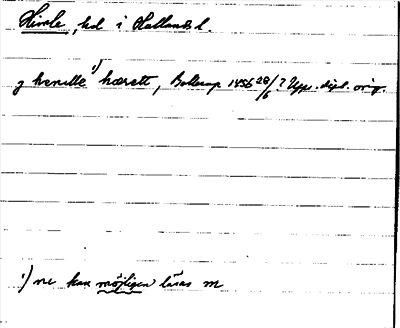 Himle, hd i Hallands l.
j hemlle ¹) hærett, Bollerup 1456 28/6 ? Upps. dipl. orig.
¹) me kan möjligen läsas m